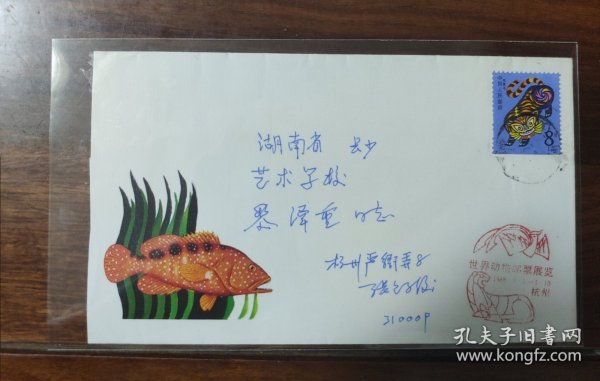 中国人民邮政
8分
湖南省 长沙
艺术学校
黎泽重 同志
杭州严衙弄8
310009
世界动物邮票展览
杭州
孔夫子旧书网
www.kongfz.com